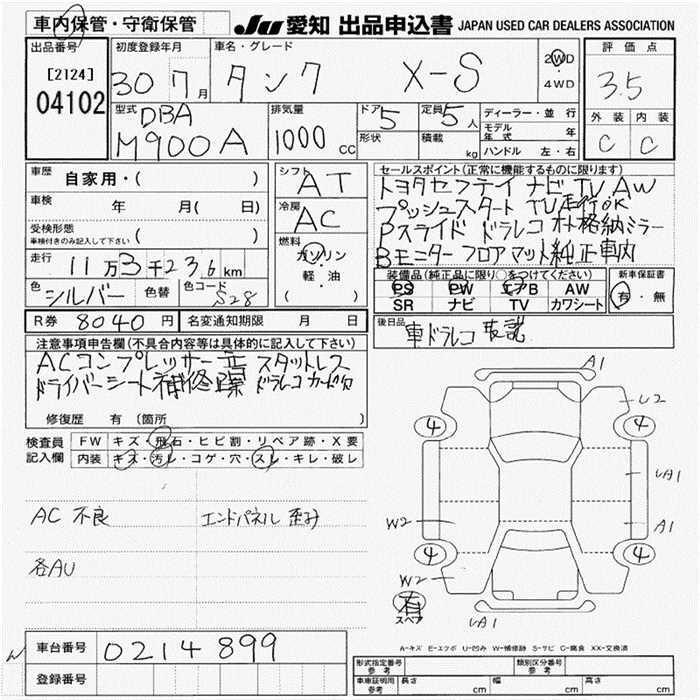 車内保管・守衛保管
JU 愛知 出品申込書 JAPAN USED CAR DEALERS ASSOCIATION
出品番号
[2124]
04102
初度登録年月
30 7月
車名・グレード
タンク X-S
2WD
4WD
評価点
3.5
外装 内装
C C
型式
DBA
M900A
排気量
1000 cc
ドア
5
形状
定員
5人
積載
kg
ディーラー・並行
モデル年式 年
ハンドル 左・右
車歴
自家用・( )
車検
年 月(日)
受検形態
車検付きのみ記入して下さい ( )
走行
11万3千236km
色
シルバー
色替
色コード
S28
シフト
AT
冷房
AC
燃料
ガソリン
軽・油
( )
セールスポイント(正常に機能するものに限ります)
トヨタセフテイ ナビ TV AW
プッシュスタート TV走行OK
Pスライド ドラレコ オト格納ミラー
Bモニター フロアマット純正車内
装備品(純正品に限り○をつけてください)
PS PW エアB AW
SR ナビ TV カワシート
新車保証書
有・無
R券 8040円
名変通知期限 月 日
後日品
車ドラレコ 取説
注意事項申告欄(不具合内容等は具体的に記入して下さい)
ACコンプレッサー スタットレス
ドライバーシート補修 ドラレコ カード欠
修復歴 有 (箇所 )
検査員記入欄
FW キズ・飛石・ヒビ割・リペア跡・X要
内装 キズ・汚レ・コゲ・穴・スレ・キレ・破レ
AC 不良 エンドパネル 歪み
各AU
A1
U2
4
4
A1
W2
A1
4
4
W2
有
スペア
A1
A-キズ E-エクボ U-凹み W-補修跡 S-サビ C-腐食 XX-交換済
車台番号 0214899
登録番号
形式指定番号 参考
類別区分番号 参考
車庫証明用 参考
長さ cm
幅 cm
高さ cm